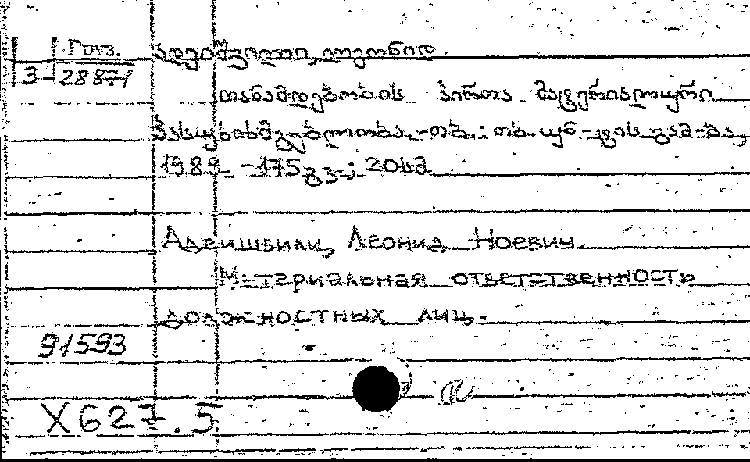 3-28871
ადეიშვილი, ლეონიდ
თანამდებობის პირთა მატერიალური
პასუხისმგებლობა.-თბ.: თბ. უნ-ტის გამ-ბა,
1989. -175გვ.; 20სმ
Адеишвили, Леонид Ноевич.
Материальная ответственность
должностных лиц.
91593
X627.5